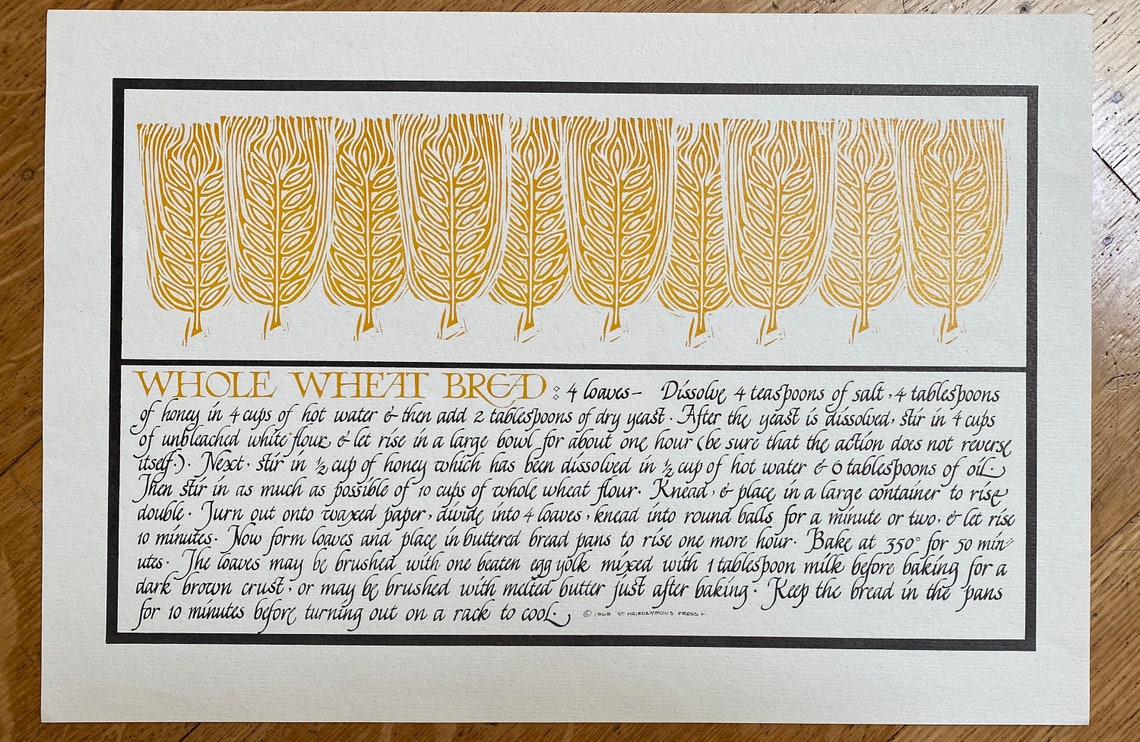 WHOLE WHEAT BREAD : 4 loaves— Dissolve 4 teaspoons of salt, 4 tablespoons
of honey in 4 cups of hot water & then add 2 tablespoons of dry yeast. After the yeast is dissolved, stir in 4 cups
of unbleached white flour, & let rise in a large bowl for about one hour (be sure that the action does not reverse
itself.). Next, stir in ½ cup of honey which has been dissolved in ½ cup of hot water & 6 tablespoons of oil.
Then stir in as much as possible of 10 cups of whole wheat flour. Knead, & place in a large container to rise
double. Turn out onto waxed paper, divide into 4 loaves, knead into round balls for a minute or two, & let rise
10 minutes. Now form loaves and place in buttered bread pans to rise one more hour. Bake at 350° for 50 min-
utes. The loaves may be brushed with one beaten egg yolk mixed with 1 tablespoon milk before baking for a
dark brown crust, or may be brushed with melted butter just after baking. Keep the bread in the pans
for 10 minutes before turning out on a rack to cool. © 1968 ST HEIRONYMOUS PRESS